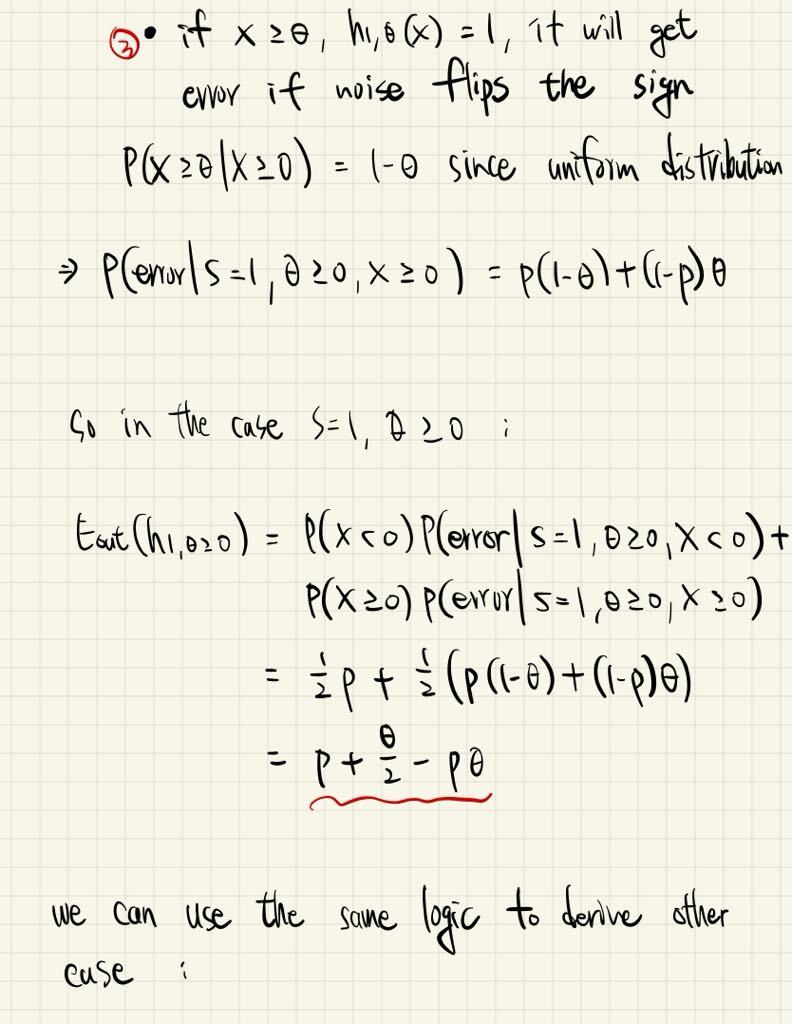 ③ • if x ≥ θ, h1,θ(x) = 1, it will get
error if noise flips the sign
P(X ≥ θ | X ≥ 0) = 1-θ since uniform distribution
⇒ P(error | S=1, θ ≥ 0, X ≥ 0) = p(1-θ)+(1-p)θ
So in the case S=1, θ ≥ 0 :
Eout(h1,θ≥0) = P(X < 0) P(error | S=1, θ≥0, X < 0) +
P(X ≥ 0) P(error | S=1, θ≥0, X ≥ 0)
= 1/2 p + 1/2 (p(1-θ)+(1-p)θ)
= p + θ/2 - pθ
we can use the same logic to derive other
case :